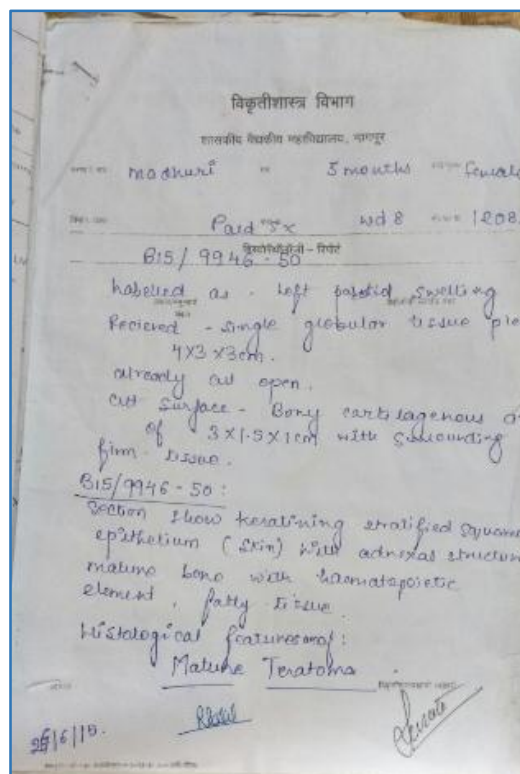 विकृतीशास्त्र विभाग
शासकीय वैद्यकीय महाविद्यालय, नागपूर
madhuri 5 months female
Paed Sx wd 8 1208
हिस्टोपॅथॉलॉजी - रिपोर्ट
B15/9946-50
labelled as - left parotid swelling
Recieved - single globular tissue
4x3x3cm.
already cut open.
cut surface - Bony cartilagenous
of 3x1.5x1cm with surrounding
firm tissue.
B15/9946-50:
Section show keratining stratified
epithetium (skin) with adnexas
mature bone with haematopoietic
element, fatty tissue.
Histological features of:
Mature Teratoma
/6/15.